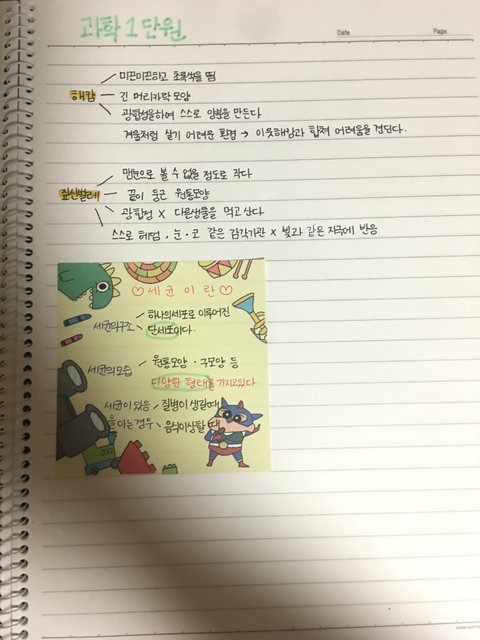 과학 1 단원
Date.
Page.
미끈미끈하고 초록색을 띔
해캄
긴 머리카락 모양
광합성을하여 스스로 양분을 만든다
겨울처럼 살기 어려운 환경 → 이웃해캄과 합쳐 어려움을 견딘다.
맨눈으로 볼 수 없을 정도로 작다
짚신벌레
끝이 둥근 원통모양
광합성 X 다른생물을 먹고 산다
스스로 헤엄, 눈·코 같은 감각기관 X 빛과 같은 자극에 반응
♡세균이란♡
하나의세포로 이루어진
세균의구조
단세포이다.
세균의모습
원통모양 · 구모양 등
다양한 형태를 가지고있다
세균이 있음 질병이 생길때
을 아는 경우 음식이상할 때